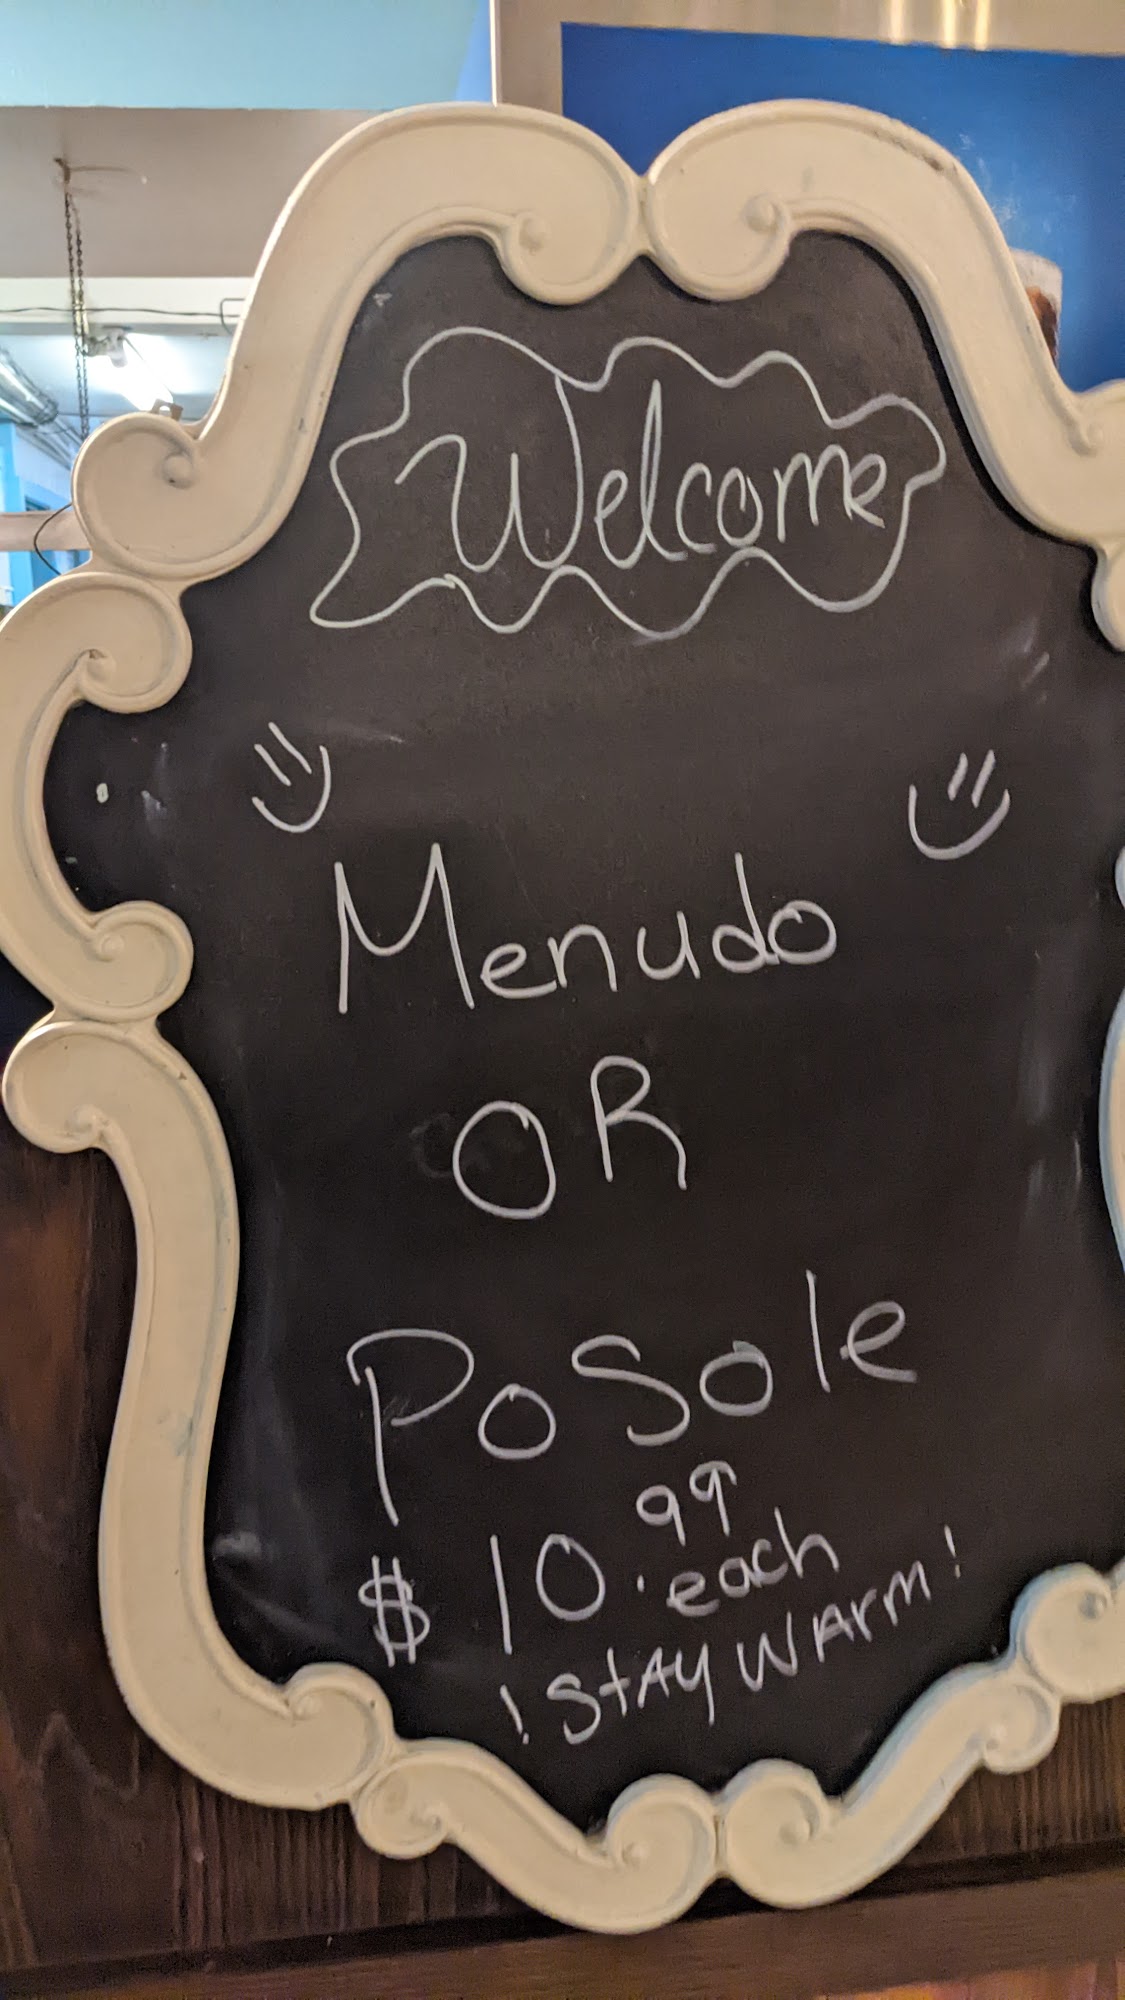 Welcome
Menudo
OR
PoSole
$10.99 each
! StAY WArm!